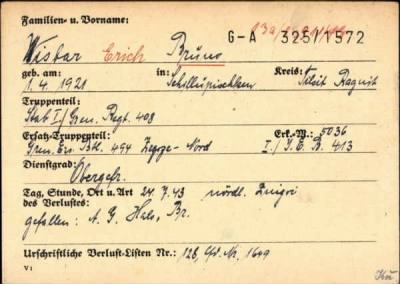 Familien- u. Vorname:
Wistar Erich Bruno G-A 3251/1572
geb. am: in: Kreis:
1. 4. 1921 Schillupischken Tilsit Ragnit
Truppenteil:
Stab I./ Gren. Regt. 408
Ersatz-Truppenteil: Erk.-M.: 5036
Gren. Ers. Btl. 494 Zegrze-Nord I./ J. E. B. 413
Dienstgrad:
Obergefr.
Tag, Stunde, Ort u. Art 24. 7. 43 nördl.
des Verlustes:
gefallen: A. G. Hals, Br.
Urschriftliche Verlust-Listen Nr.: 128, lfd. Nr. 1649
V1